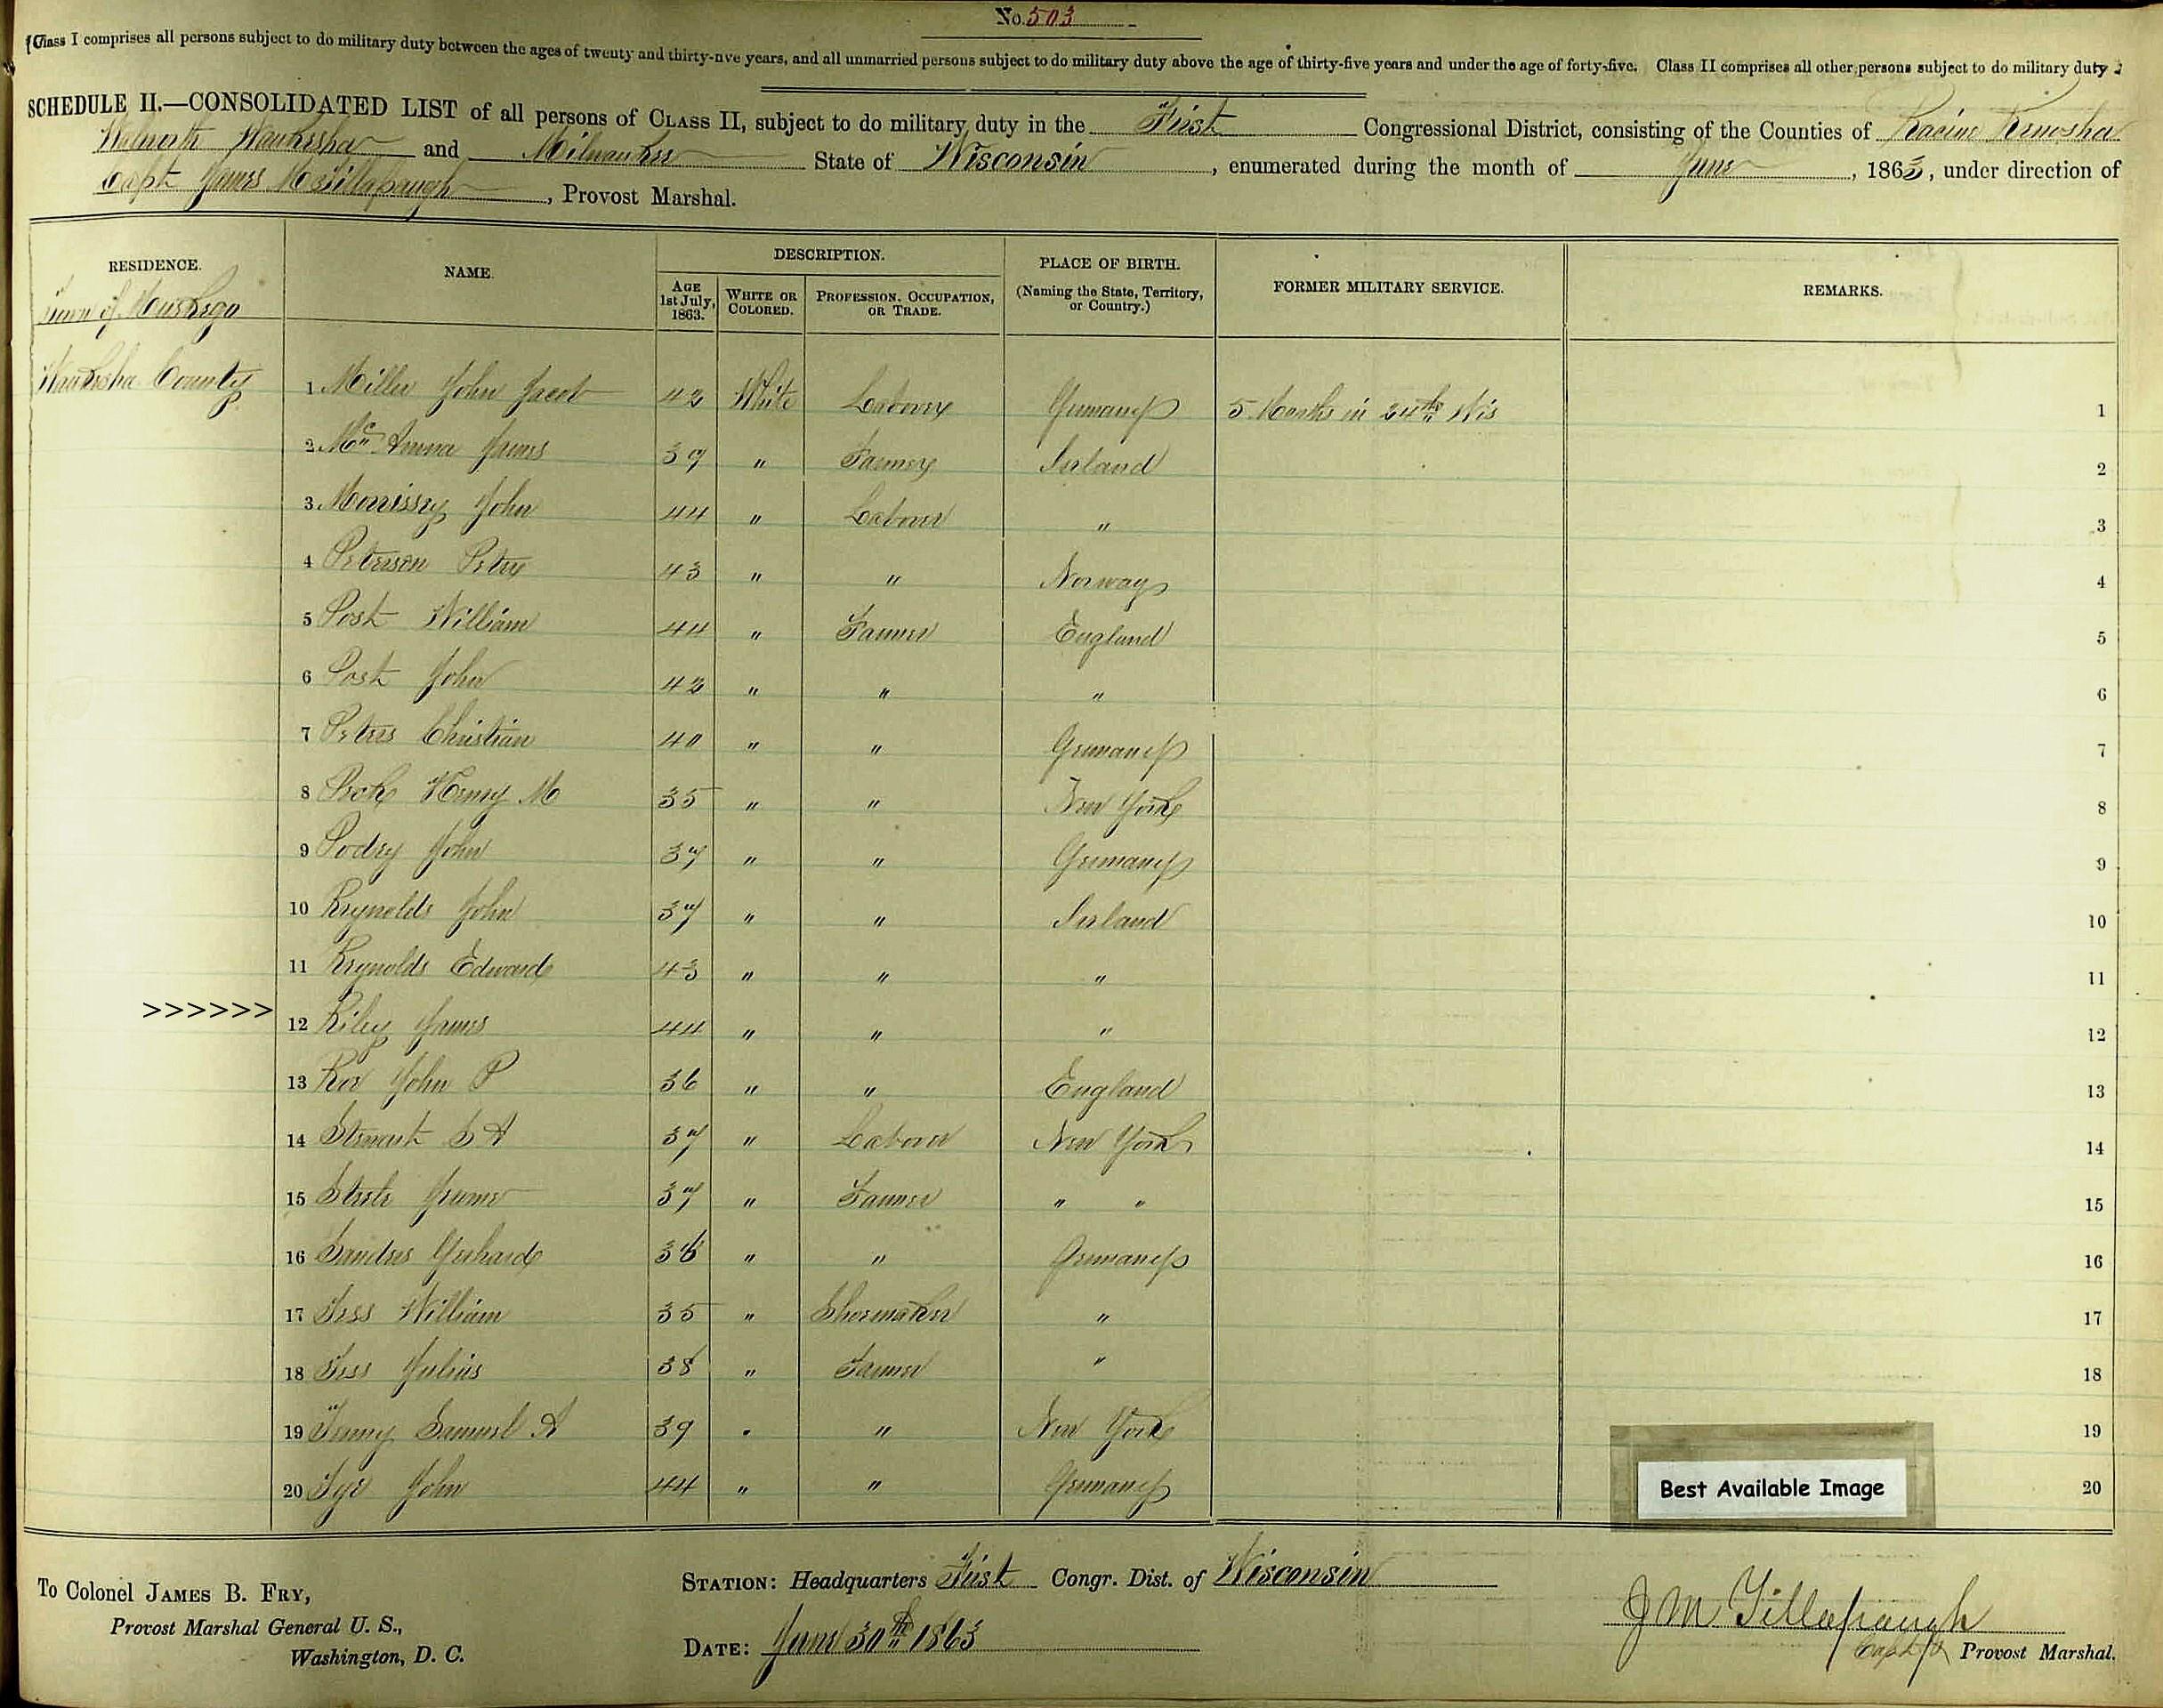 No. 503
(Class I comprises all persons subject to do military duty between the ages of twenty and thirty-five years, and all unmarried persons subject to do military duty above the age of thirty-five years and under the age of forty-five. Class II comprises all other persons subject to do military duty.)
SCHEDULE II.—CONSOLIDATED LIST of all persons of CLASS II, subject to do military duty in the First Congressional District, consisting of the Counties of Racine Kenosha
Walworth Waukesha and Milwaukee State of Wisconsin, enumerated during the month of June, 1863, under direction of
Capt James M Tillapaugh, Provost Marshal.
RESIDENCE. NAME. DESCRIPTION. PLACE OF BIRTH. (Naming the State, Territory, or Country.) FORMER MILITARY SERVICE. REMARKS.
AGE 1st July, 1863. WHITE OR COLORED. PROFESSION, OCCUPATION, OR TRADE.
Town of Muskego
Waukesha County
1 Miller John Jacob 42 White Laborer Germany 5 Months in 24th Wis 1
2 Mc Namara James 39 " Farmer Ireland 2
3 Morrissey John 44 " Laborer " 3
4 Peterson Peter 43 " " Norway 4
5 Post William 44 " Farmer England 5
6 Post John 42 " " " 6
7 Peters Christian 40 " " Germany 7
8 Peck Henry M 35 " " New York 8
9 John 37 " " Germany 9
10 Reynolds John 37 " " Ireland 10
11 Reynolds Edward 43 " " " 11
>>>>>> 12 Riley James 44 " " " 12
13 John P 36 " " England 13
14 Stewart S A 37 " Laborer New York 14
15 Steele 37 " Farmer " " 15
16 Sanders Gerhard 36 " " Germany 16
17 Tess William 35 " Shoemaker " 17
18 Tess Julius 38 " Farmer " 18
19 Tenny Samuel A 39 " " New York 19
20 John 44 " " Germany 20
Best Available Image
To Colonel JAMES B. FRY,
Provost Marshal General U. S.,
Washington, D. C.
STATION: Headquarters First Congr. Dist. of Wisconsin
DATE: June 30th 1863
J M Tillapaugh
Capt & Provost Marshal.